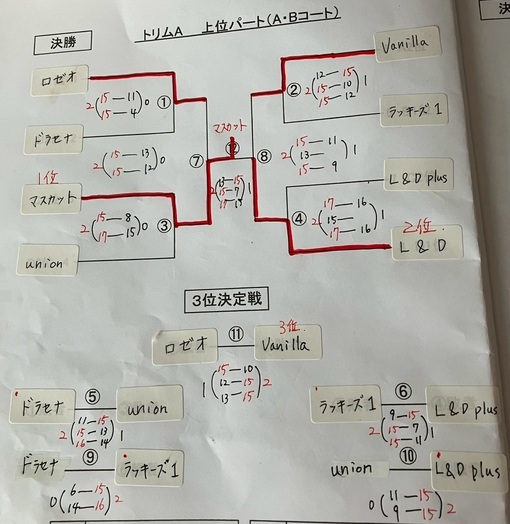 トリムA 上位パート(A・Bコート)
決
決勝
ロゼオ
2(15—11 15—4)0
①
ドラセナ
2(15—13 15—12)0
1位
マスカット
2(15—8 17—15)0
③
union
⑦
マスカット
⑫
⑧
Vanilla
②
2(12—15 15—10 15—12)1
ラッキーズ1
2(15—11 13— 15—9)1
L&D plus
④
2(17—16 15— 17—16)1
2位
L&D
3位決定戦
3位
ロゼオ ⑪ Vanilla
1(15—10 12—15 13—15)2
ドラセナ ⑤ union
2(11—15 15—13 16—14)1
ラッキーズ1 ⑥ L&D plus
2(9—15 15—7 15—11)1
ドラセナ ⑨ ラッキーズ1
0(6—15 14—16)2
union ⑩ L&D plus
0(11—15 9—15)2